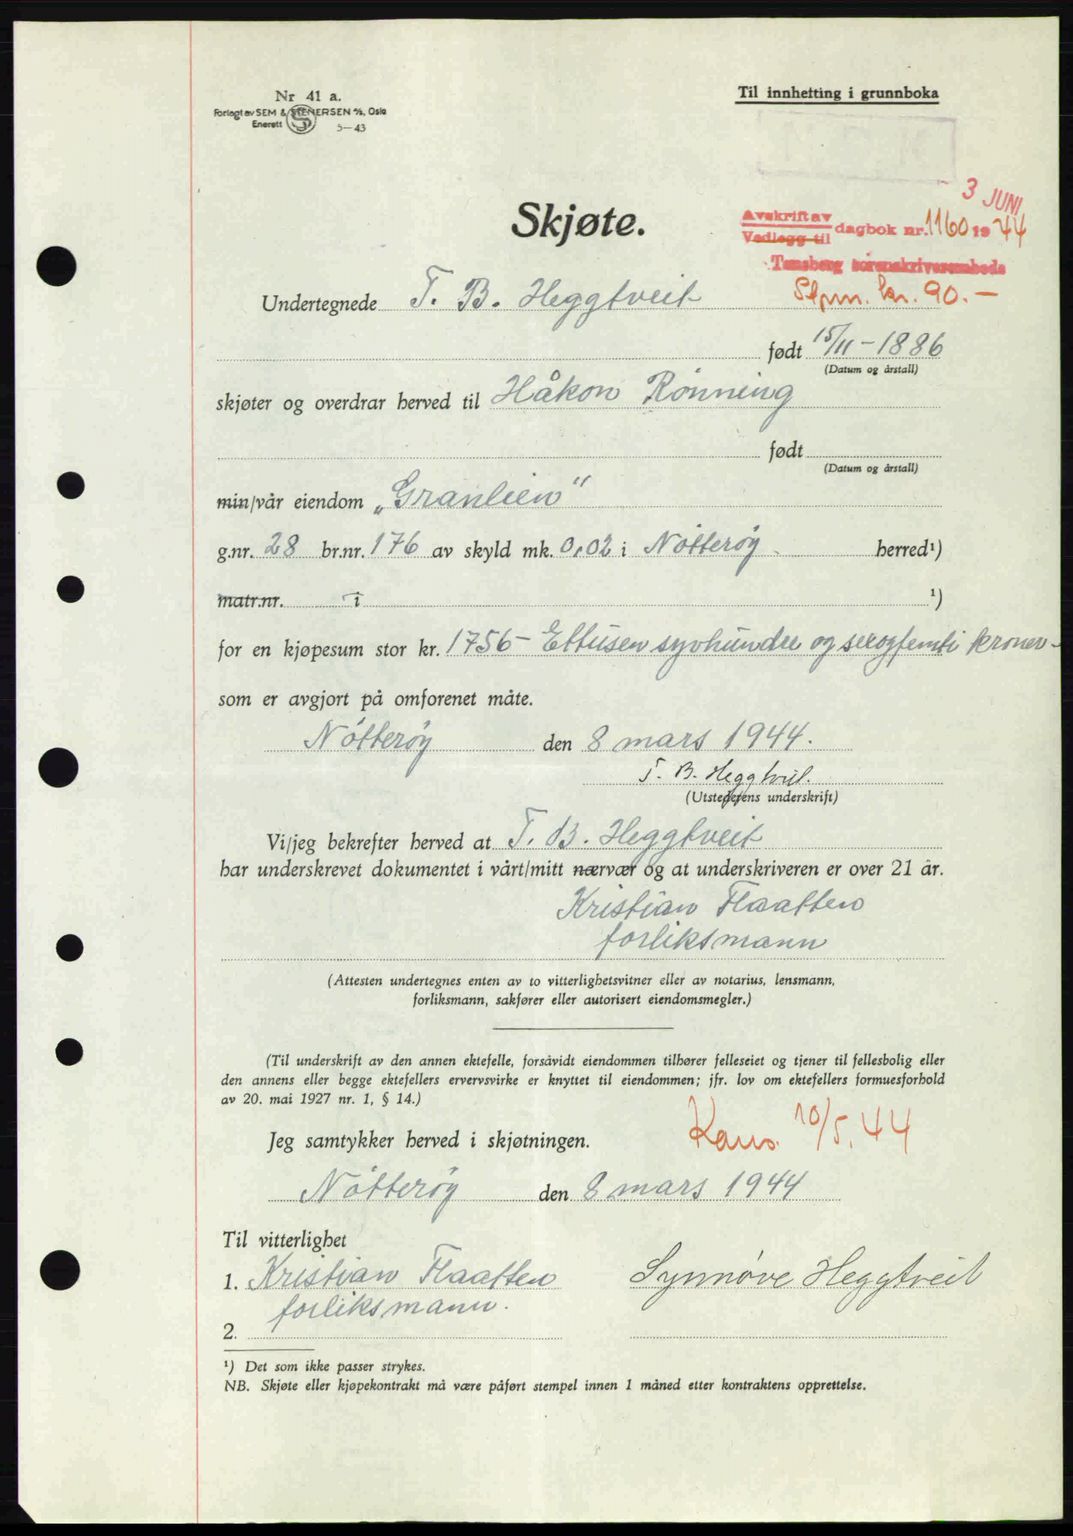 Nr 41 a.
Forlagt av SEM & STENERSEN A/S, Oslo
Enerett 5—43
Til innhefting i grunnboka
3 JUNI
Skjøte.
Avskrift av
Vedlegg til dagbok nr. 1160 1944
Tønsberg sorenskriverembede
Stpm. kr. 90.—
Undertegnede T. B. Heggtveit
født 15/11-1886
(Datum og årstall)
skjøter og overdrar herved til Håkon Rönning
født
(Datum og årstall)
min/vår eiendom „Granlien"
g.nr. 28 br.nr. 176 av skyld mk. 0,02 i Nötteröy herred¹)
matr.nr. i ¹)
for en kjøpesum stor kr. 1756- Ettusen syvhundre og seksogfemti kroner-
som er avgjort på omforenet måte.
Nötteröy den 8 mars 1944.
T. B. Heggtveit.
(Utstederens underskrift)
Vi/jeg bekrefter herved at T. B. Heggtveit
har underskrevet dokumentet i vårt/mitt nærvær og at underskriveren er over 21 år.
Kristian Flaatten
forliksmann
(Attesten undertegnes enten av to vitterlighetsvitner eller av notarius, lensmann,
forliksmann, sakfører eller autorisert eiendomsmegler.)
(Til underskrift av den annen ektefelle, forsåvidt eiendommen tilhører felleseiet og tjener til fellesbolig eller
den annens eller begge ektefellers ervervsvirke er knyttet til eiendommen; jfr. lov om ektefellers formuesforhold
av 20. mai 1927 nr. 1, § 14.)
Kons. 10/5.44
Jeg samtykker herved i skjøtningen.
Nötteröy den 8 mars 1944
Til vitterlighet
1. Kristian Flaatten Synnøve Heggtveit
forliksmann.
2.
¹) Det som ikke passer strykes.
NB. Skjøte eller kjøpekontrakt må være påført stempel innen 1 måned etter kontraktens opprettelse.